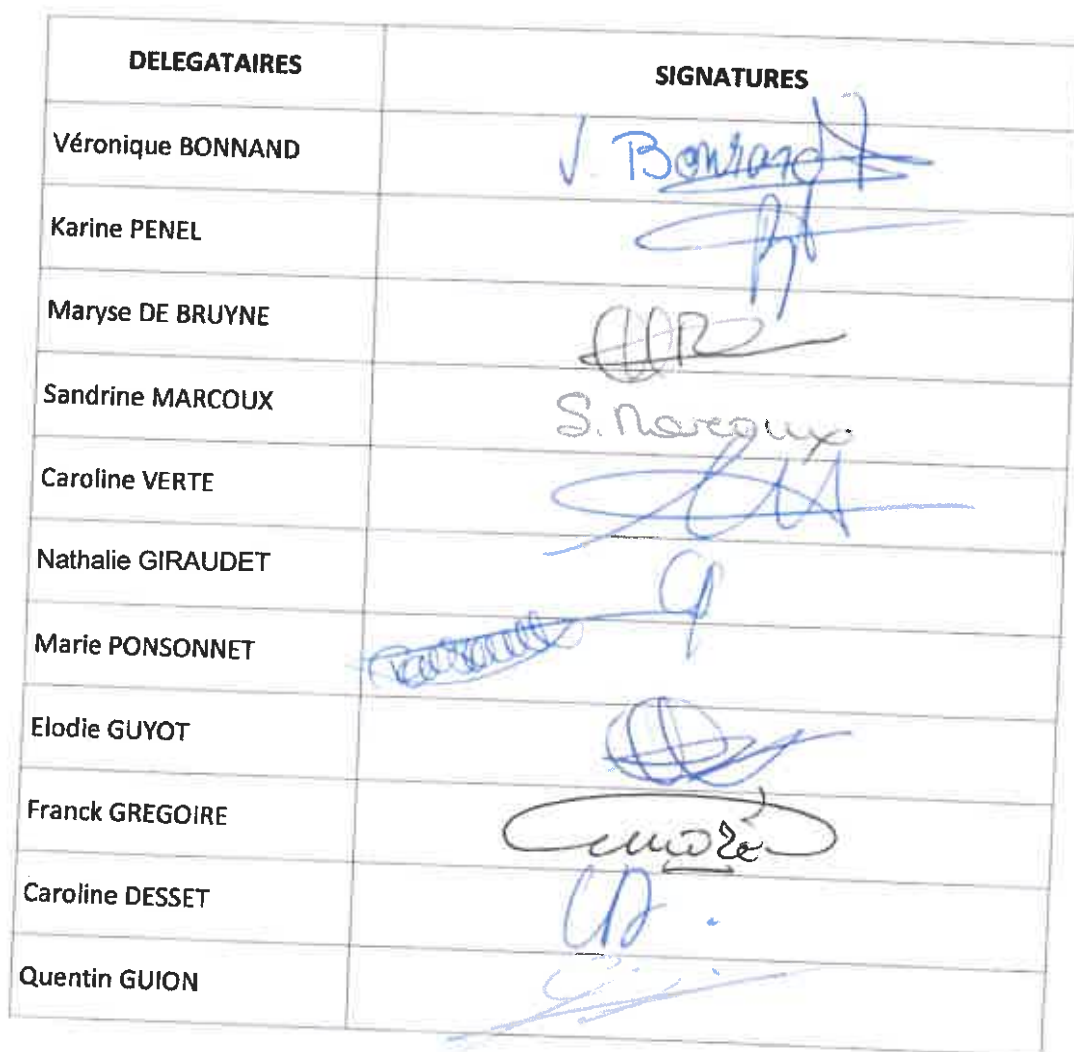 DELEGATAIRES SIGNATURES
Véronique BONNAND V. Bonnand
Karine PENEL
Maryse DE BRUYNE
Sandrine MARCOUX S. Marcoux
Caroline VERTE
Nathalie GIRAUDET
Marie PONSONNET
Elodie GUYOT
Franck GREGOIRE
Caroline DESSET
Quentin GUION